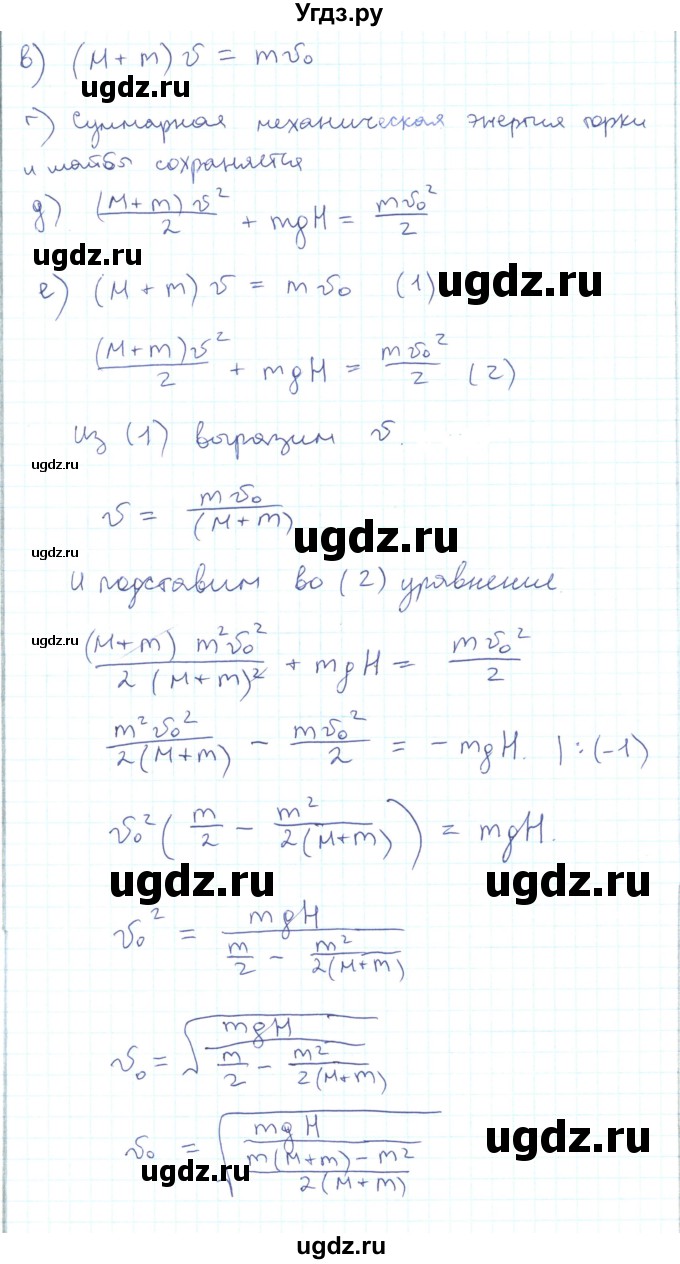 Угдз.ру
в) (M + m) υ = mυ₀
ugdz.ru
г) Суммарная механическая энергия горки
и шайбы сохраняется
д) (M + m) υ² / 2 + mgH = mυ₀² / 2
ugdz.ru
е) (M + m) υ = m υ₀ (1)
ugdz.ru
(M + m)υ² / 2 + mgH = mυ₀² / 2 (2)
из (1) выразим υ.
ugdz.ru
υ = mυ₀ / (M + m)
ugdz.ru
ugdz.ru
и подставим во (2) уравнение.
ugdz.ru
(M + m) m²υ₀² / 2 (M + m)² + mgH = mυ₀² / 2
m²υ₀² / 2(M + m) − mυ₀² / 2 = − mgH. | : (−1)
υ₀² ( m / 2 − m² / 2(M + m) ) = mgH.
ugdz.ru ugdz.ru
υ₀² = mgH / ( m / 2 − m² / 2(M + m) )
υ₀ = √( mgH / ( m / 2 − m² / 2(M + m) ) )
υ₀ = √( mgH / ( m(M + m) − m² / 2(M + m) ) )
ugdz.ru
ugdz.ru
ugdz.ru